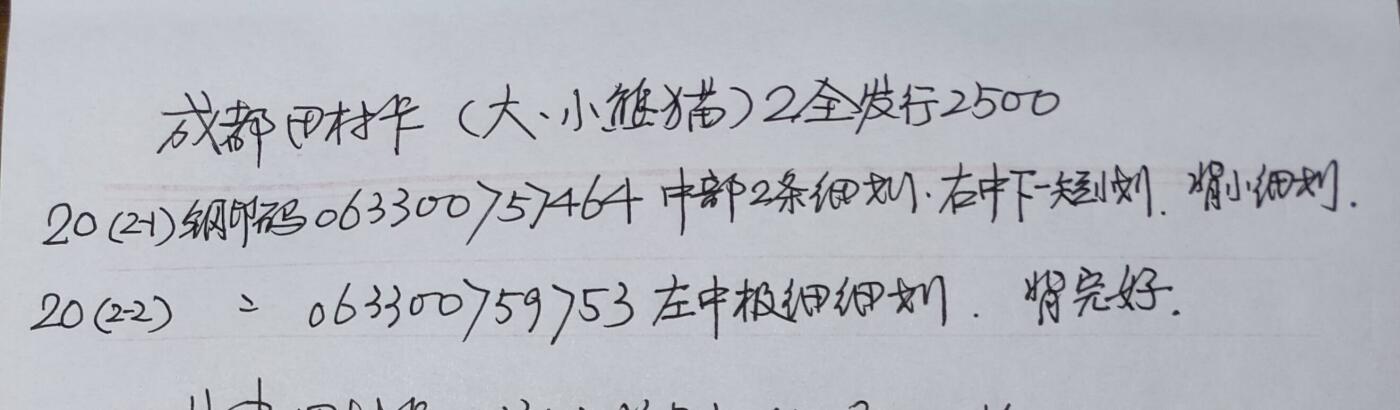 成都田村卡（大、小熊猫）2全发行2500
20(2-1)钢印码063300757464中部2条细划.右中下一短划.背小细划.
20(2-2) 〃 063300759753左中极细细划. 背完好.